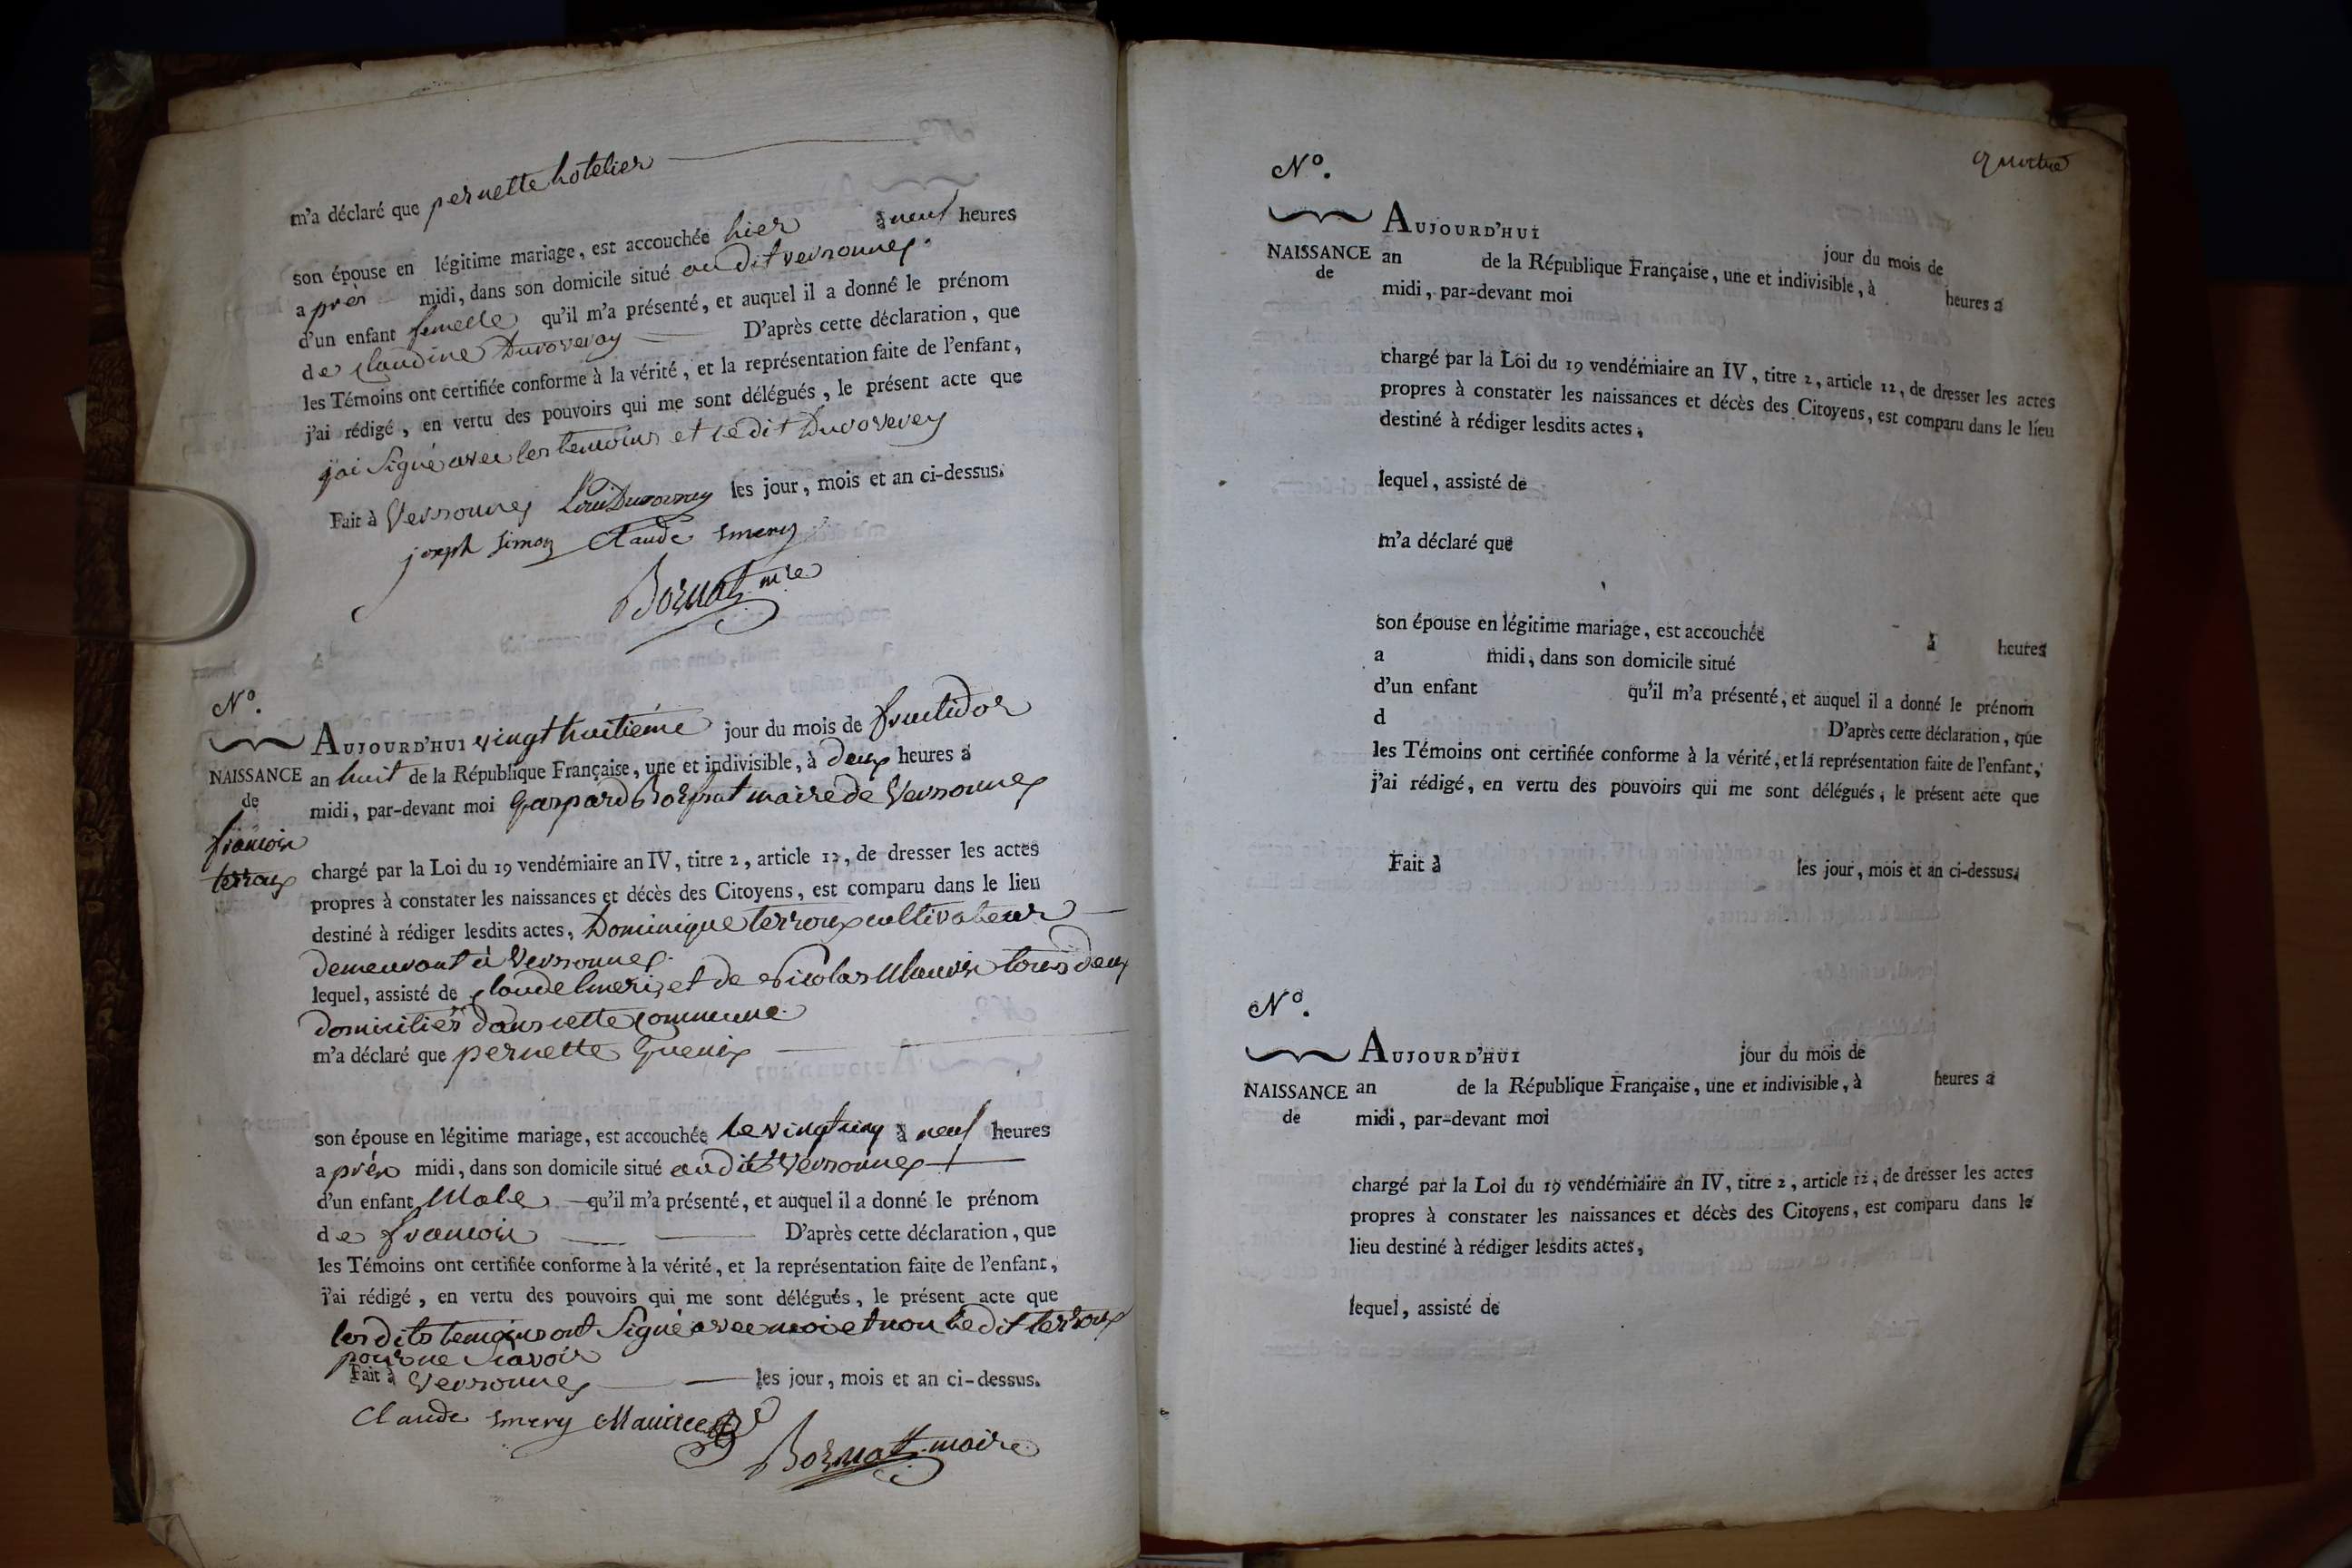 m'a déclaré que pernette hotelier
son épouse en légitime mariage, est accouchée hier à neuf heures
après midi, dans son domicile situé au dit versonnex.
d'un enfant femelle qu'il m'a présenté, et auquel il a donné le prénom
de Claudine Duroveray D'après cette déclaration, que
les Témoins ont certifiée conforme à la vérité, et la représentation faite de l'enfant,
j'ai rédigé, en vertu des pouvoirs qui me sont délégués, le présent acte que
j'ai Signé avec les temoins et ledit Duroverey
Fait à Versonnex les jour, mois et an ci-dessus.
joseph simon Claude Emery
Bornat mre
N°.
AUJOURD'HUI vingt huitiéme jour du mois de fructidor
NAISSANCE an huit de la République Française, une et indivisible, à deux heures a
de midi, par-devant moi Gaspard Bornat maire de Versonnex
francois
terroux chargé par la Loi du 19 vendémiaire an IV, titre 2, article 12, de dresser les actes
propres à constater les naissances et décès des Citoyens, est comparu dans le lieu
destiné à rédiger lesdits actes, Dominique terroux cultivateur
demeurant à Versonnex.
lequel, assisté de Claude Emeri, et de Nicolas Mauris tous deux
domiciliés dans cette commune.
m'a déclaré que pernette
son épouse en légitime mariage, est accouchée le vingt cinq à neuf heures
après midi, dans son domicile situé au dit Versonnex
d'un enfant Male qu'il m'a présenté, et auquel il a donné le prénom
de francois D'après cette déclaration, que
les Témoins ont certifiée conforme à la vérité, et la représentation faite de l'enfant,
j'ai rédigé, en vertu des pouvoirs qui me sont délégués, le présent acte que
les dits temoins ont Signé avec moi et non le dit terroux
pour ne Scavoir
Fait à Versonnex les jour, mois et an ci-dessus.
Claude Emery Maurice
Bornat maire
quatre
N°.
AUJOURD'HUI jour du mois de
NAISSANCE an de la République Française, une et indivisible, à heures a
de midi, par-devant moi
chargé par la Loi du 19 vendémiaire an IV, titre 2, article 12, de dresser les actes
propres à constater les naissances et décès des Citoyens, est comparu dans le lieu
destiné à rédiger lesdits actes,
lequel, assisté de
m'a déclaré que
son épouse en légitime mariage, est accouchée à heures
a midi, dans son domicile situé
d'un enfant qu'il m'a présenté, et auquel il a donné le prénom
d D'après cette déclaration, que
les Témoins ont certifiée conforme à la vérité, et la représentation faite de l'enfant,
j'ai rédigé, en vertu des pouvoirs qui me sont délégués, le présent acte que
Fait à les jour, mois et an ci-dessus.
N°.
AUJOURD'HUI jour du mois de
NAISSANCE an de la République Française, une et indivisible, à heures a
de midi, par-devant moi
chargé par la Loi du 19 vendémiaire an IV, titre 2, article 12, de dresser les actes
propres à constater les naissances et décès des Citoyens, est comparu dans le
lieu destiné à rédiger lesdits actes,
lequel, assisté de